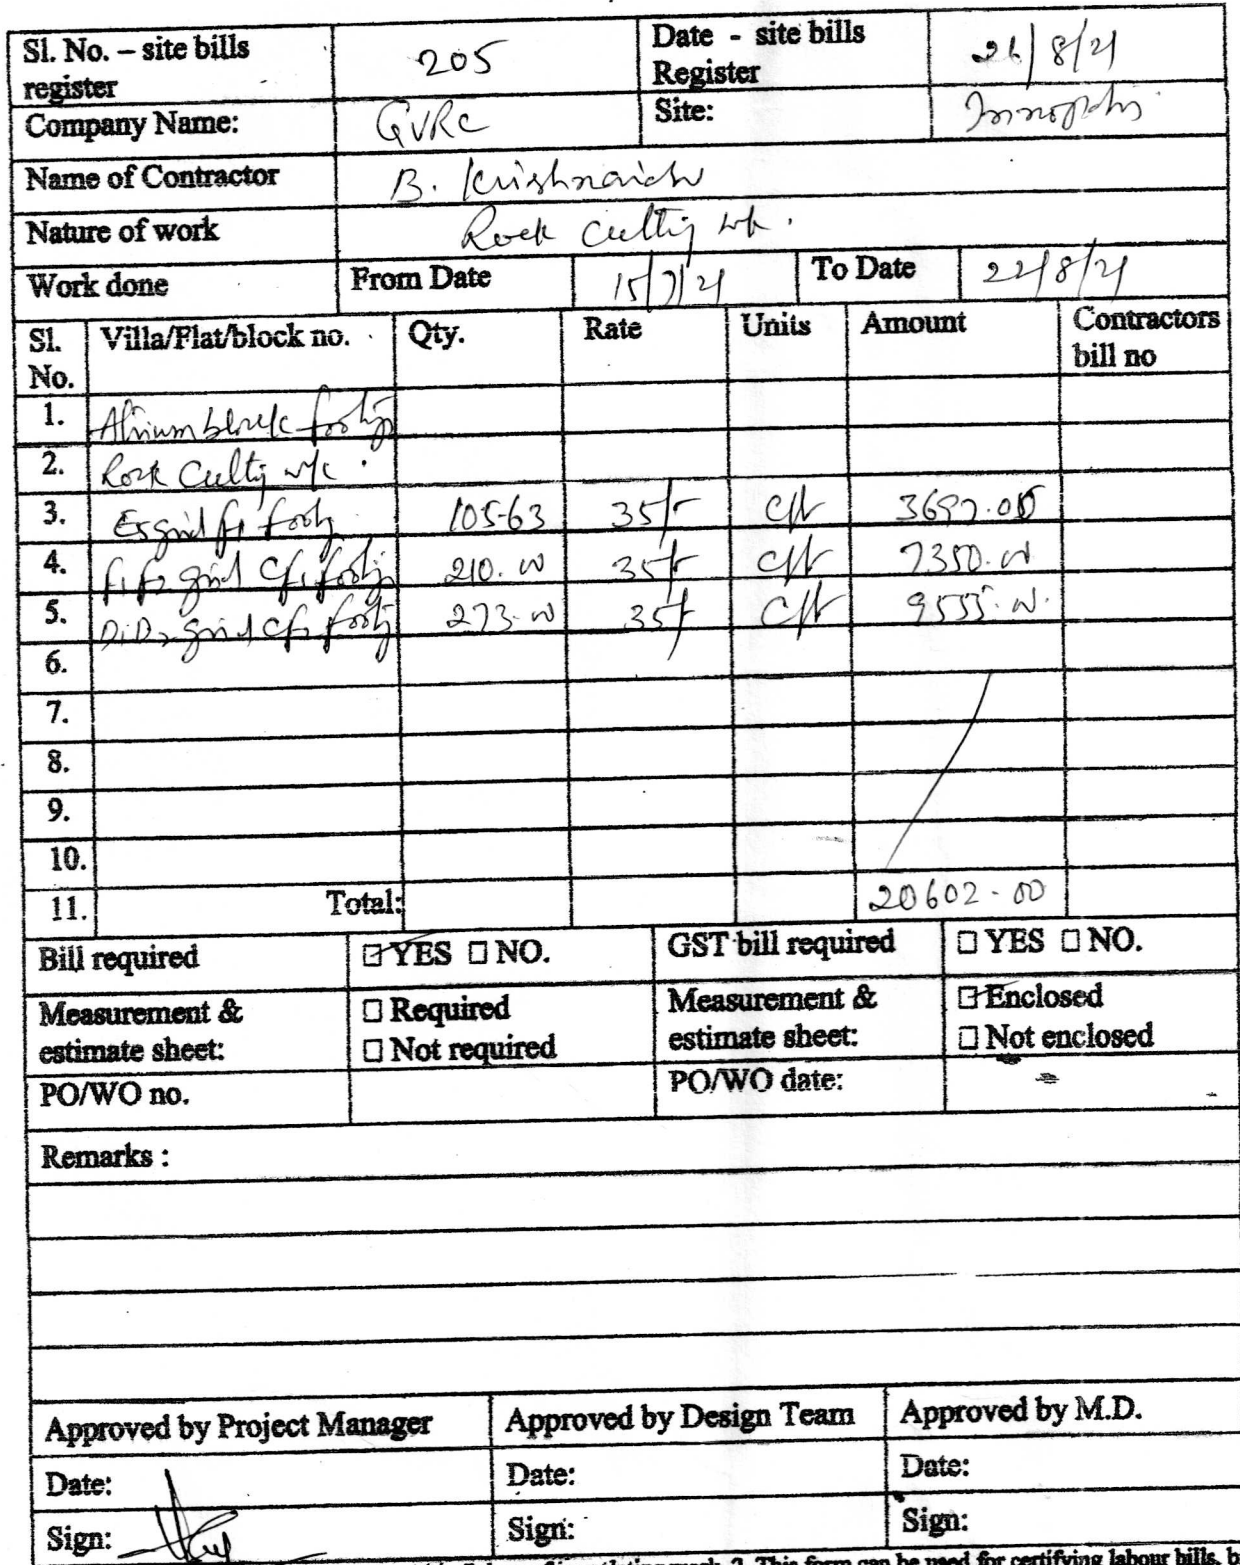 Sl. No. – site bills register 205 Date - site bills Register 26/8/21
Company Name: GVRC Site:
Name of Contractor B. Krishnaiah
Nature of work Rock Cutting wk.
Work done From Date 15/7/21 To Date 22/8/21
Sl. No. Villa/Flat/block no. Qty. Rate Units Amount Contractors bill no
1. Atrium block footing
2. Rock Cutting wk.
3. grid footing 105-63 35/- cft 3697.05
4. grid footing 210.00 35/- cft 7350.00
5. grid footing 273.00 35/- cft 9555.00
6.
7.
8.
9.
10.
11. Total: 20602-00
Bill required ☑ YES ☐ NO. GST bill required ☐ YES ☐ NO.
Measurement & estimate sheet: ☐ Required ☐ Not required Measurement & estimate sheet: ☑ Enclosed ☐ Not enclosed
PO/WO no. PO/WO date:
Remarks :
Approved by Project Manager Approved by Design Team Approved by M.D.
Date: Date: Date:
Sign: Sign: Sign:
2. This form can be used for certifying labour bills, b